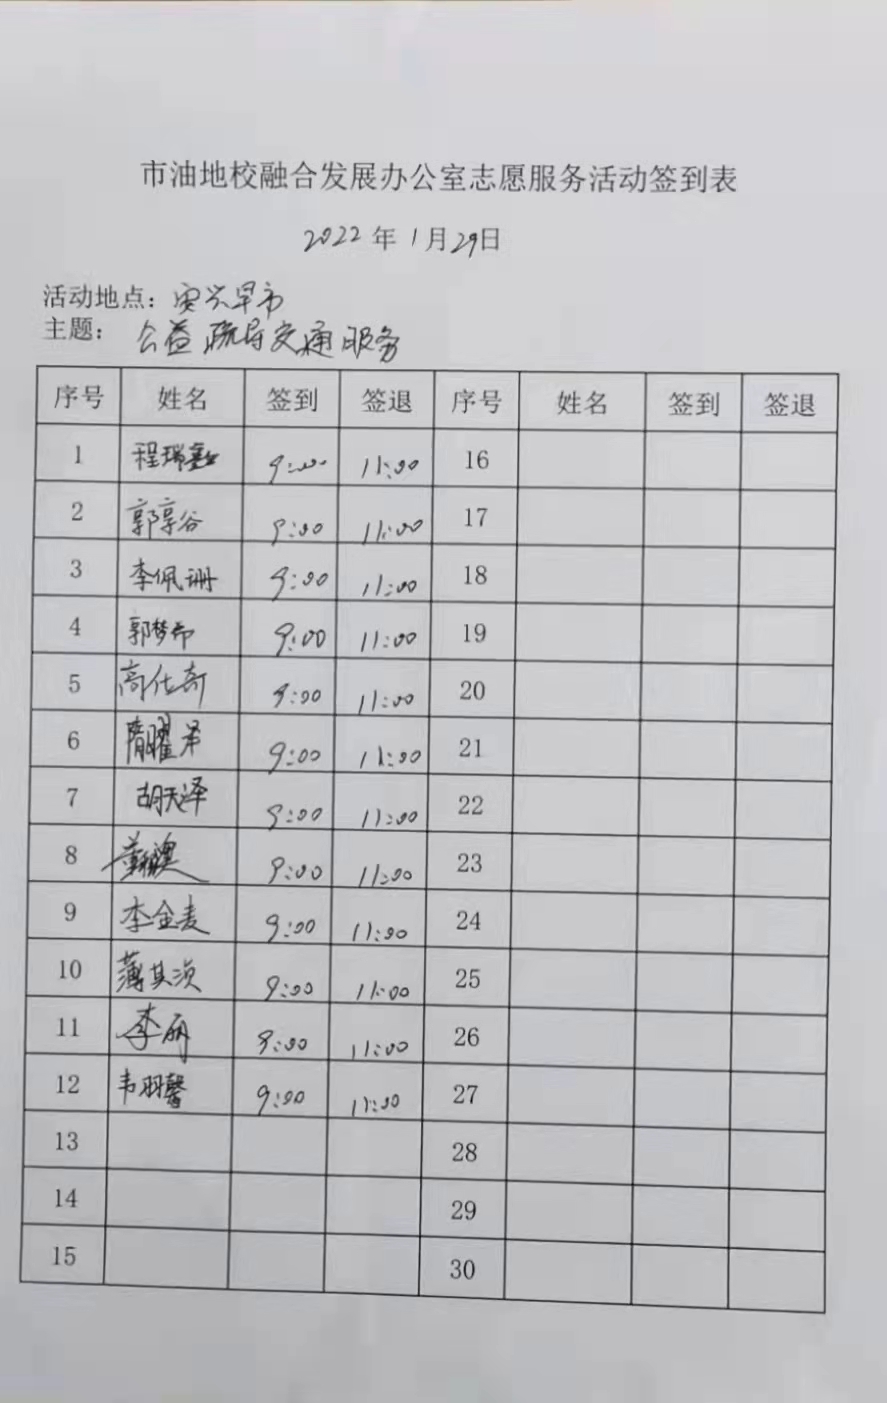 市油地校融合发展办公室志愿服务活动签到表
2022年1月29日
活动地点：安兴早市
主题：公益疏导交通服务
序号 姓名 签到 签退 序号 姓名 签到 签退
1 程瑞 9:00 11:00 16
2 郭享谷 9:00 11:00 17
3 李佩珊 9:00 11:00 18
4 郭梦希 9:00 11:00 19
5 高仕奇 9:00 11:00 20
6 隋曜 9:00 11:00 21
7 胡天泽 9:00 11:00 22
8 9:00 11:00 23
9 李金麦 9:00 11:00 24
10 薄其滨 9:00 11:00 25
11 李丽 9:00 11:00 26
12 韦羽馨 9:00 11:00 27
13 28
14 29
15 30